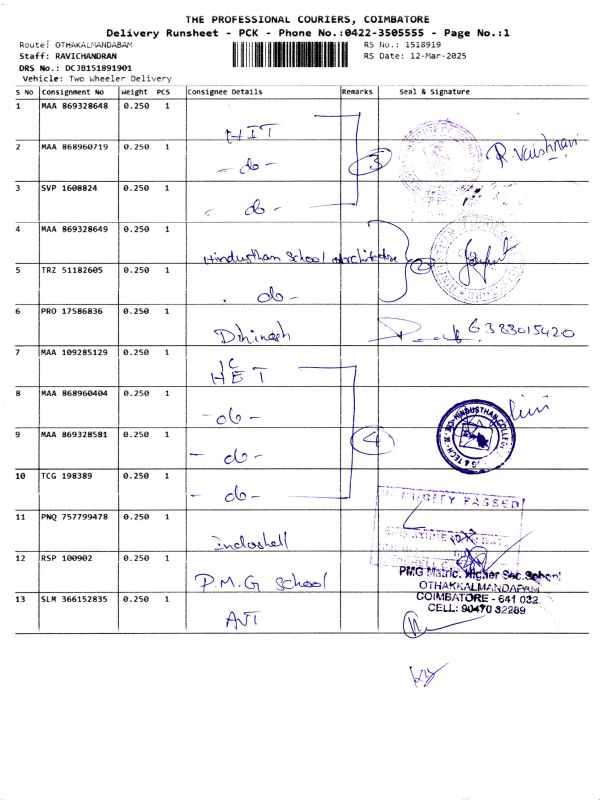 THE PROFESSIONAL COURIERS, COIMBATORE
Delivery Runsheet - PCK - Phone No.:0422-3505555 - Page No.:1
Route: OTHAKALMANDABAM
RS No.: 1518919
Staff: RAVICHANDRAN
RS Date: 12-Mar-2025
DRS No.: DCJB151891901
Vehicle: Two Wheeler Delivery
S NO Consignment No Weight PCS Consignee Details Remarks Seal & Signature
1 MAA 869328648 0.250 1 HIT
2 MAA 868960719 0.250 1 - do - 3 R. Vaishnavi
3 SVP 1608824 0.250 1 - do -
4 MAA 869328649 0.250 1 Hindusthan School architecture
5 TRZ 51182605 0.250 1 - do - 2
6 PRO 17586836 0.250 1 Dhinesh 6383015420
7 MAA 109285129 0.250 1 HET
8 MAA 868960404 0.250 1 - do -
9 MAA 869328581 0.250 1 - do - 4 HINDUSTHAN COLLEGE
10 TCG 198389 0.250 1 - do -
SECURITY PASSED
11 PNQ 757799478 0.250 1 Indoshell
12 RSP 100902 0.250 1 P.M.G School
PMG Matric. Higher Sec. School
OTHAKKALMANDAPAM
COIMBATORE - 641 032
CELL: 90470 32289
13 SLM 366152835 0.250 1 AJT